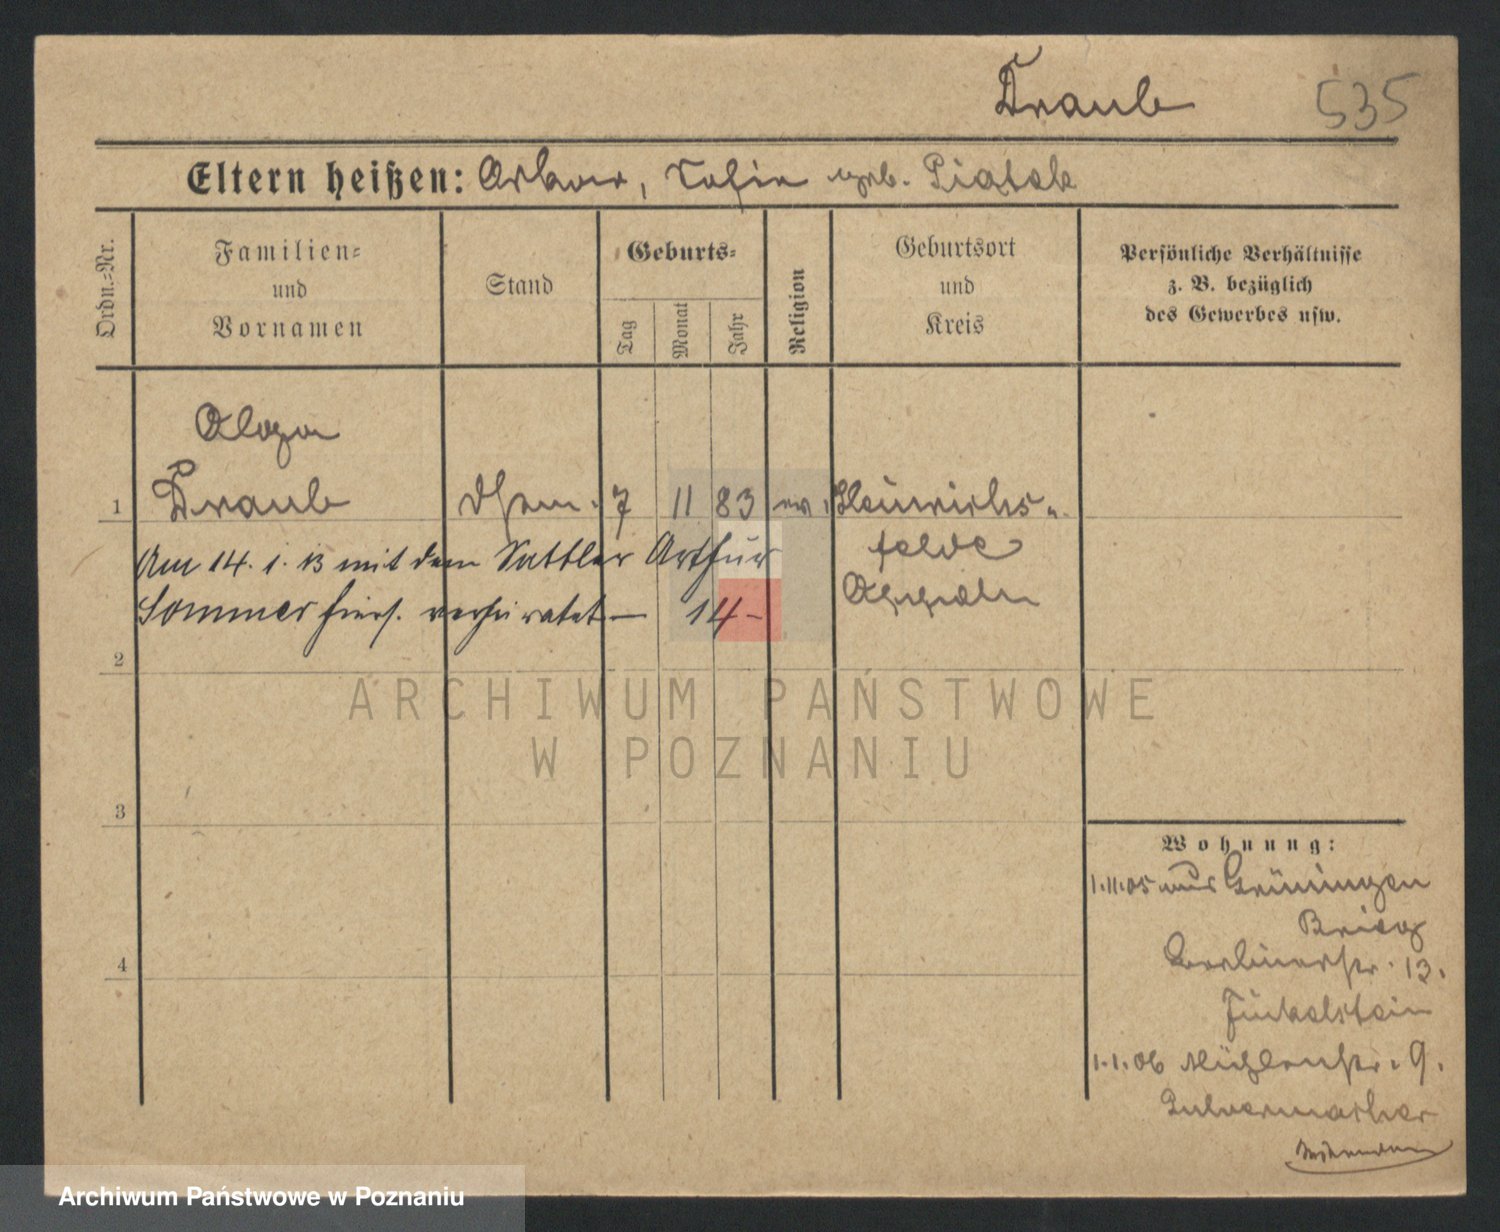 Draub
535
Eltern heißen: Arbeiter, Sofie geb. Piątek
Ordn.-Nr.
Familien-
und
Vornamen
Stand
Geburts-
Tag
Monat
Jahr
Religion
Geburtsort
und
Kreis
Persönliche Verhältnisse
z. B. bezüglich
des Gewerbes usw.
Olga
1 Draub 7 11 83 ev. Heinrichs-
felde
Am 14. 1. 13 mit dem Sattler Arthur
Sommer hiers. verheiratet — 14-
2
3
4
Wohnung:
1.11.05 aus Grüningen
Brieg
Berlinerstr. 13.
Finkelstein
1.1.06 Mühlenstr. 9.
Pulvermacher
ARCHIWUM PAŃSTWOWE
W POZNANIU
Archiwum Państwowe w Poznaniu